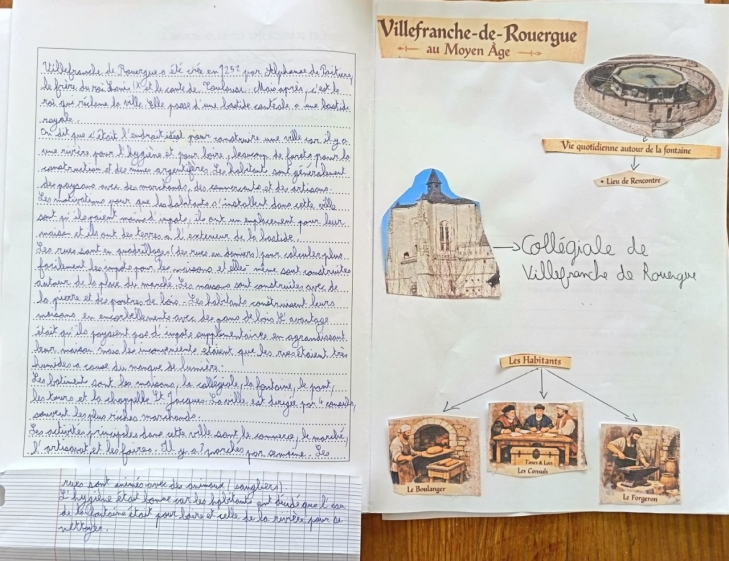 Villefranche de Rouergue a été crée en 1252 par Alphonse de Poitiers,
le frère du roi Louis IX et le comte de Toulouse. Mais après, c'est le
roi que réclame la ville. Elle passe d'une bastide comtale a une bastide
royale.
On dit que c'était l'endroit idéal pour construire une ville car il y a
une rivière pour l'hygiène et pour boire, beaucoup de forets pour la
construction et des mines argentifères. Les habitants sont généralement
des paysans avec des marchands, des commercants et des artisans.
Les motivations pour que les habitants s'installent dans cette ville
sont qu'ils paient moins d'impots, ils ont un emplacement pour leur
maison et ils ont des terres a l'exterieur de la bastide.
Les rues sont en quadrillage (des rues en damiers) pour calculer plus
facilement les impots par les maisons et elles-même sont construites
autour de la place du marché. Les maisons sont construites avec de
la pierre et des poutres de bois. Les habitants construisent leurs
maisons en encorbellements avec des pans de bois. L'avantage
était qu'ils payaient pas d'impots supplémentaires en agrandissant
leur maison mais les inconvenients étaient que les rues étaient très
humides a cause du manque de lumière.
Les batiments sont les maisons, la collégiale, la fontaine, le pont,
les tours et la chapelle St Jacques. La ville est dirigée par 4 consuls,
souvent les plus riches marchands.
Les activités principales dans cette ville sont le commerce, le marché,
l'artisanat et les foires. Il y a marchés par semaine. Les
rues sont animées avec des animaux (sangliers).
L'hygiène était bonne car les habitants ont décidé que l'eau
de la fontaine était pour boire et celle de la rivière pour se
nettoyer.
Villefranche-de-Rouergue
au Moyen Âge
Vie quotidienne autour de la fontaine
• Lieu de Rencontre
Collégiale de
Villefranche de Rouergue
Les Habitants
Le Boulanger
Taxes & Lois
Les Consuls
Le Forgeron